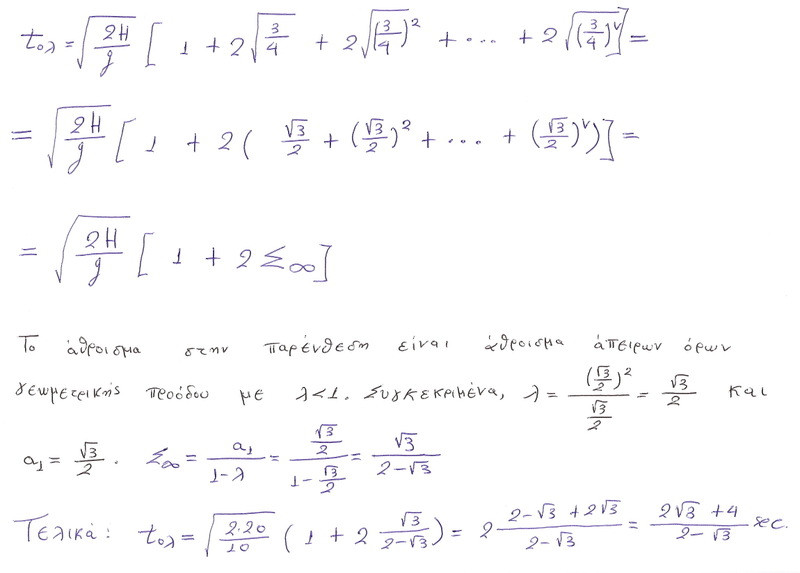 tολ = √(2H/g) [ 1 + 2√(3/4) + 2√(3/4)² + ... + 2√(3/4)^ν ] =
= √(2H/g) [ 1 + 2( √3/2 + (√3/2)² + ... + (√3/2)^ν ) ] =
= √(2H/g) [ 1 + 2Σ∞ ]
Το άθροισμα στην παρένθεση είναι άθροισμα άπειρων όρων
γεωμετρικής προόδου με λ<1. Συγκεκριμένα, λ = (√3/2)² / (√3/2) = √3/2 και
α₁ = √3/2 . Σ∞ = α₁/(1-λ) = (√3/2)/(1-√3/2) = √3/(2-√3)
Τελικά: tολ = √(2·20/10) ( 1 + 2 √3/(2-√3) ) = 2 (2-√3+2√3)/(2-√3) = (2√3+4)/(2-√3) sec.